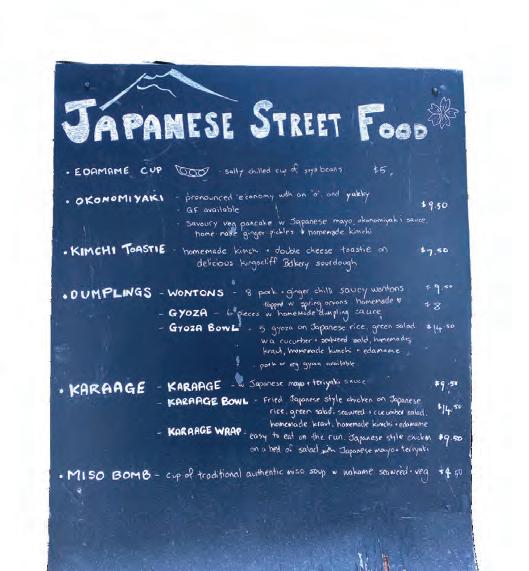 JAPANESE STREET FOOD
• EDAMAME CUP - salty chilled cup of soya beans $5.
• OKONOMIYAKI - pronounced 'economy with an 'o', and yakky
- GF available $9.50
- savoury veg pancake w Japanese mayo, okonomiyaki sauce,
home-made ginger pickles + homemade kimchi
• KIMCHI TOASTIE - homemade kimchi + double cheese toastie on $7.50
delicious Kingscliff Bakery sourdough
• DUMPLINGS - WONTONS - 8 pork + ginger chilli saucy wontons $9.50
topped w spring onions homemade
- GYOZA - 6 pieces w homemade dumpling sauce $8
- GYOZA BOWL - 5 gyoza on Japanese rice, green salad $14.50
w a cucumber + seaweed salad, homemade
kraut, homemade kimchi + edamame
- pork or veg gyoza available
• KARAAGE - KARAAGE - w Japanese mayo + teriyaki sauce $9.50
- KARAAGE BOWL - Fried Japanese style chicken on Japanese
rice, green salad, seaweed + cucumber salad, $14.50
homemade kraut, homemade kimchi + edamame
- KARAAGE WRAP - easy to eat on the run. Japanese style chicken $9.50
on a bed of salad with Japanese mayo + teriyaki
• MISO BOMB - cup of traditional authentic miso soup w wakame seaweed + veg $4.50